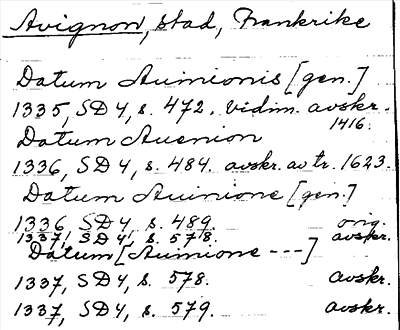 Avignon, stad, Frankrike
Datum Auinionis [gen.]
1335, SD 4, s. 472. vidim. avskr.
1416.
Datum Auenion
1336, SD 4, s. 484. avskr. av tr. 1623.
Datum Auinione [gen.]
1336, SD 4, s. 489. orig.
1337, SD 4, s. 578. avskr.
Datum [Auinione ---]
1337, SD 4, s. 578. avskr.
1337, SD 4, s. 579. avskr.